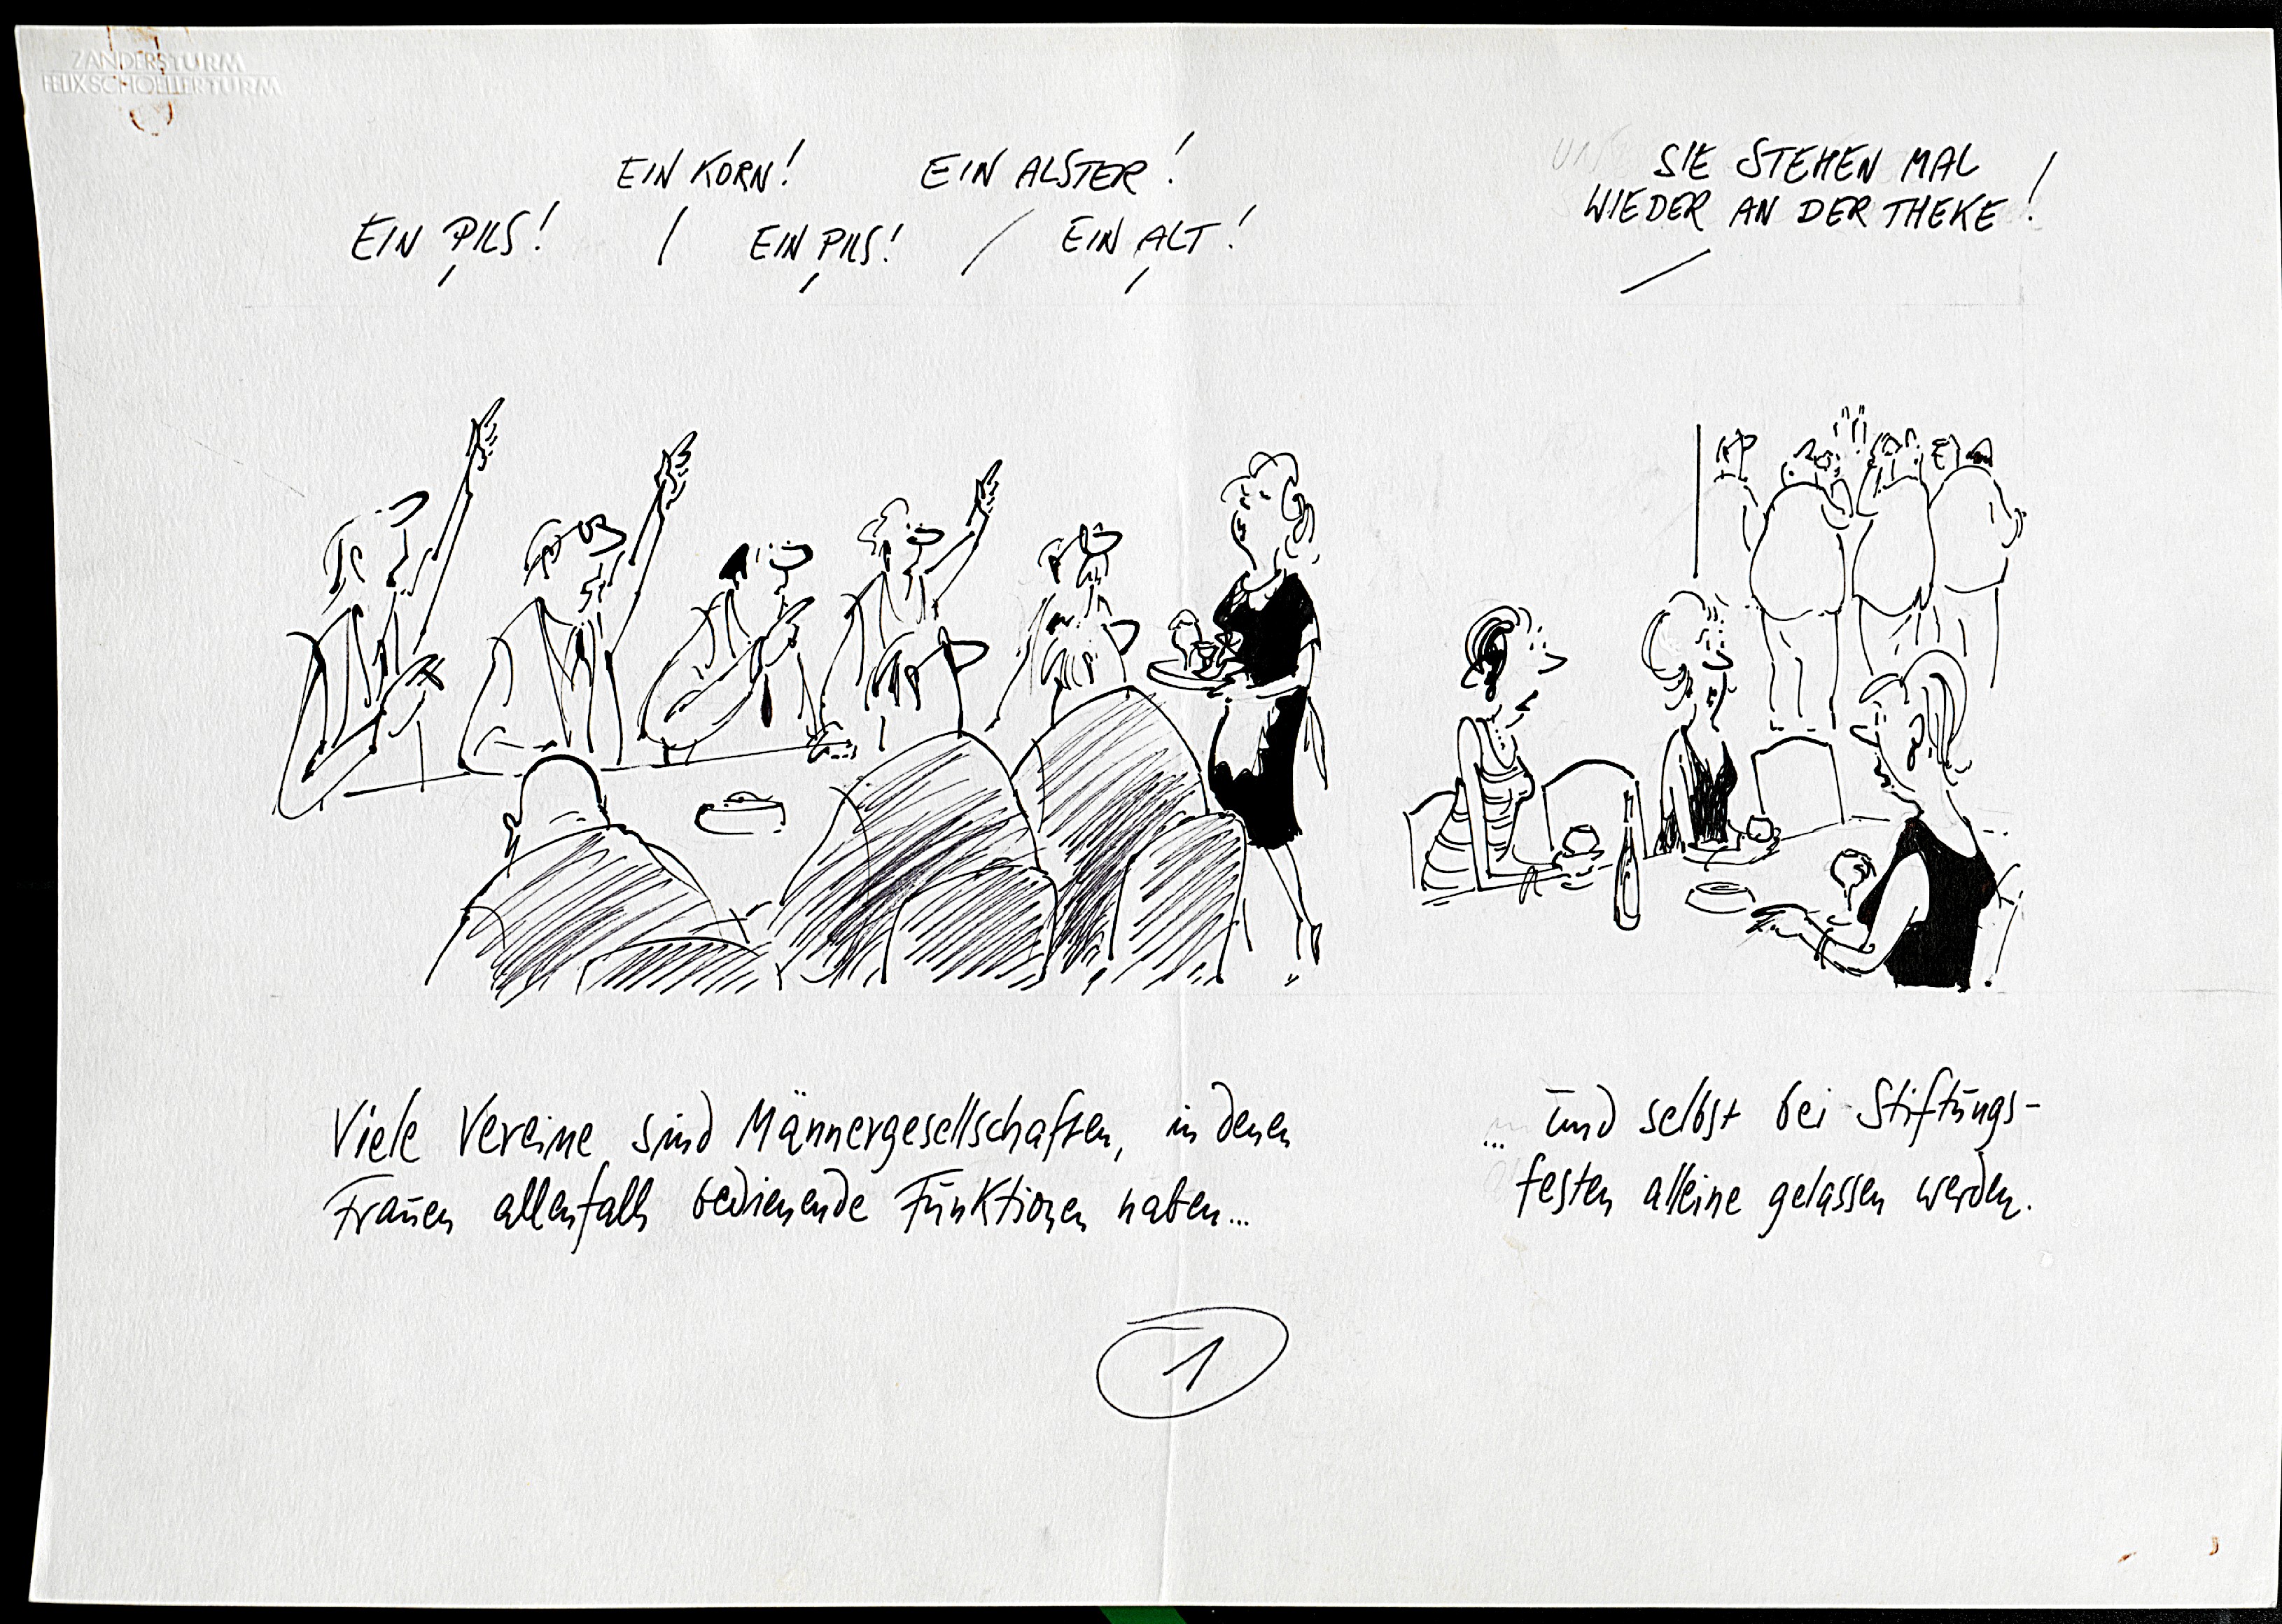 ZANDERSTURM
FELIX SCHOELLERTURM
EIN KORN! EIN ALSTER!
EIN PILS! EIN PILS! EIN ALT!
SIE STEHEN MAL
WIEDER AN DER THEKE!
Viele Vereine sind Männergesellschaften, in denen
Frauen allenfalls bedienende Funktionen haben...
... und selbst bei Stiftungs-
festen alleine gelassen werden.
1